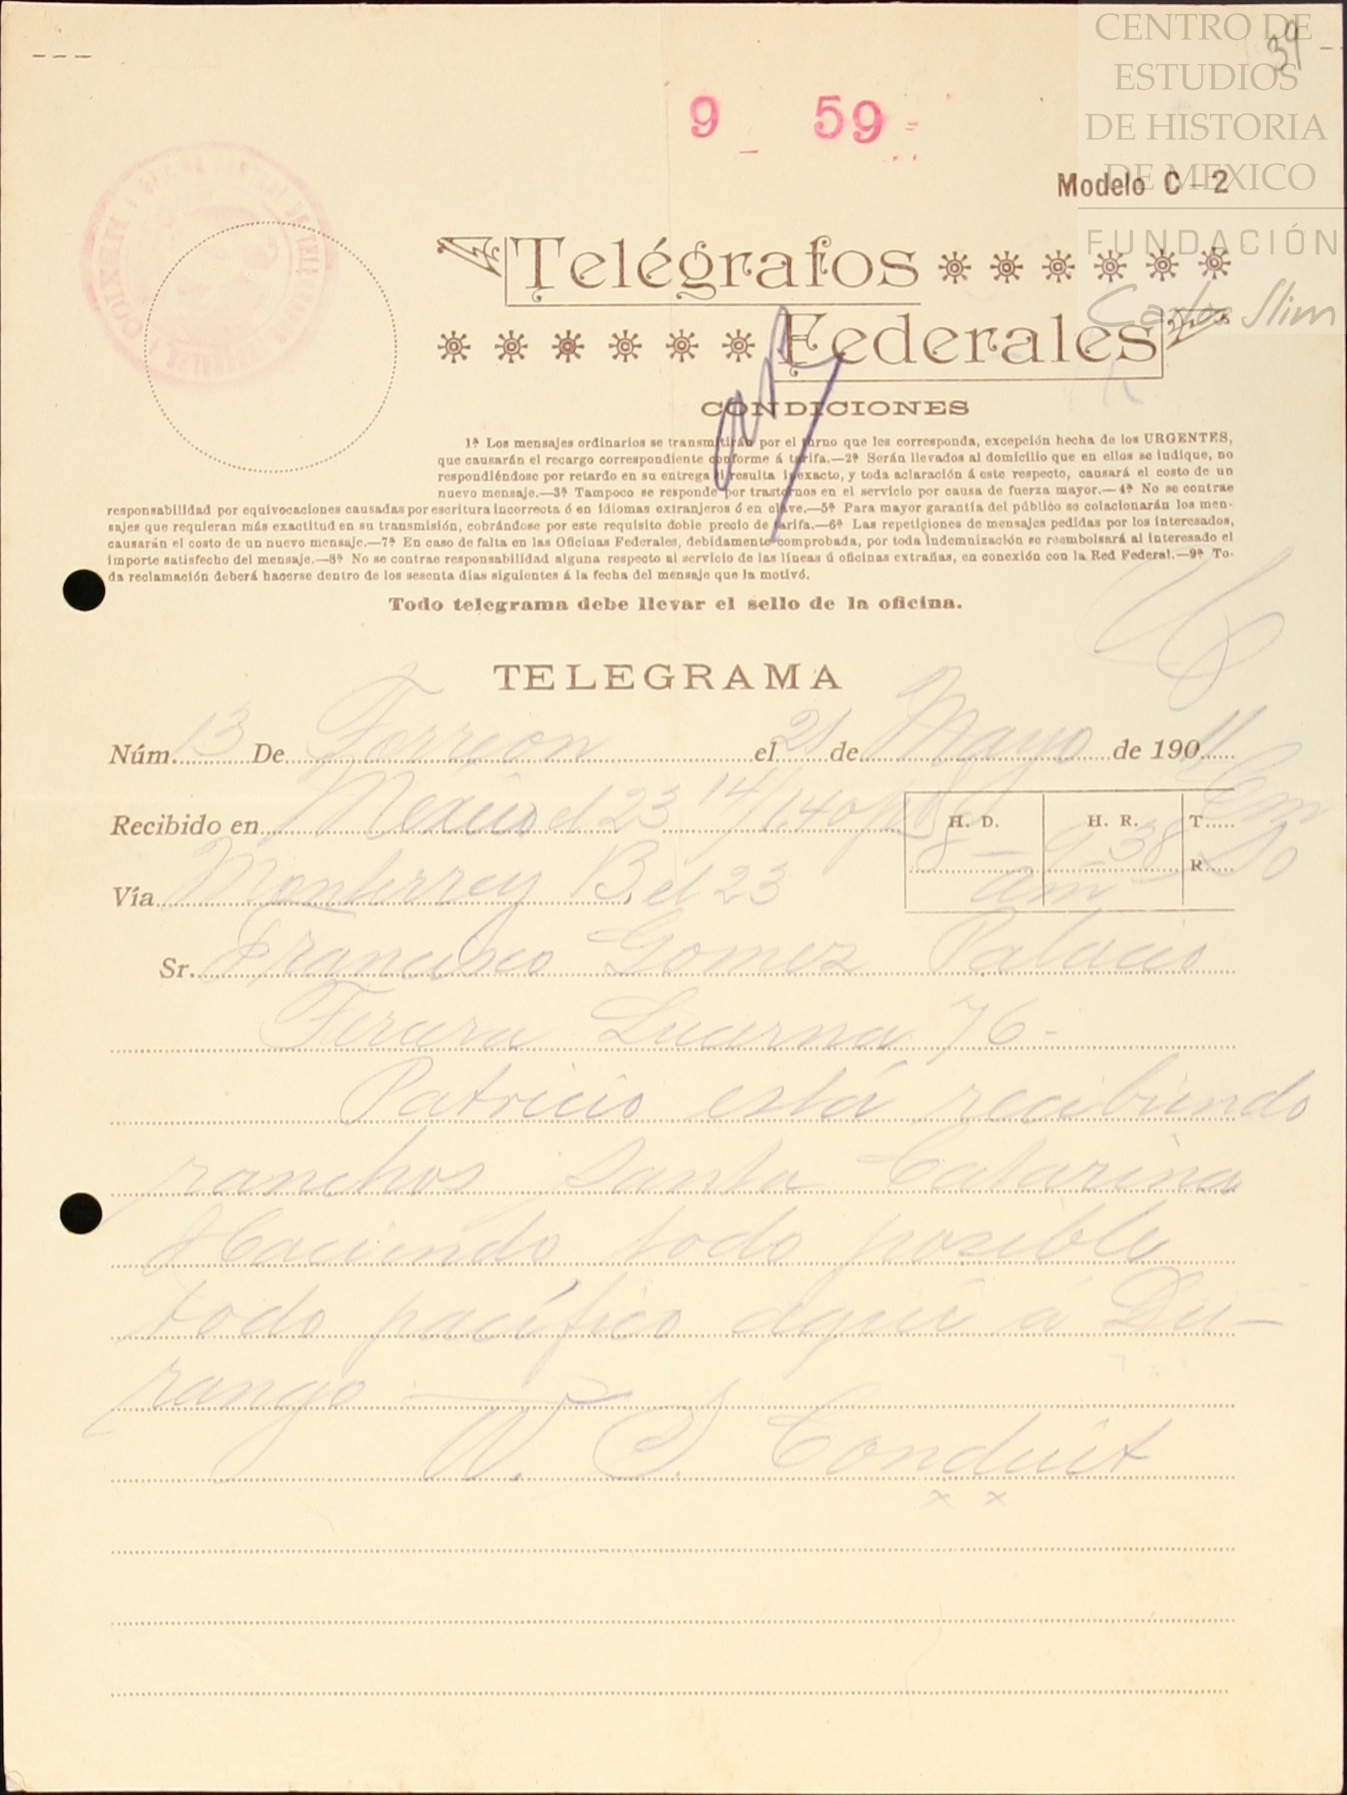 CENTRO DE
ESTUDIOS
DE HISTORIA
DE MEXICO
FUNDACIÓN
Carlos Slim
39
9 59
Modelo C-2
Telégrafos
Federales
CONDICIONES
1ª Los mensajes ordinarios se transmitirán por el turno que les corresponda, excepción hecha de los URGENTES,
que causarán el recargo correspondiente conforme á tarifa.—2ª Serán llevados al domicilio que en ellos se indique, no
respondiéndose por retardo en su entrega si resulta inexacto, y toda aclaración á este respecto, causará el costo de un
nuevo mensaje.—3ª Tampoco se responde por trastornos en el servicio por causa de fuerza mayor.—4ª No se contrae
responsabilidad por equivocaciones causadas por escritura incorrecta ó en idiomas extranjeros ó en clave.—5ª Para mayor garantía del público se colacionarán los men-
sajes que requieran más exactitud en su transmisión, cobrándose por este requisito doble precio de tarifa.—6ª Las repeticiones de mensajes pedidas por los interesados,
causarán el costo de un nuevo mensaje.—7ª En caso de falta en las Oficinas Federales, debidamente comprobada, por toda indemnización se reembolsará al interesado el
importe satisfecho del mensaje.—8ª No se contrae responsabilidad alguna respecto al servicio de las líneas ú oficinas extrañas, en conexión con la Red Federal.—9ª To-
da reclamación deberá hacerse dentro de los sesenta días siguientes á la fecha del mensaje que la motivó.
Todo telegrama debe llevar el sello de la oficina.
TELEGRAMA
Núm. 13 De Torreon el 21 de Mayo de 190 11
Recibido en Mexico el 23 14/140 H. D. H. R. T.
8 - 9-38 R
Vía Monterrey B. el 23 am
Sr. Francisco Gomez Palacio
Tercera Lucerna 76-
Patricio está recibiendo
ranchos Santa Catarina
Haciendo todo posible
todo pacífico aquí á Du-
rango
W. S. Conduit
x x